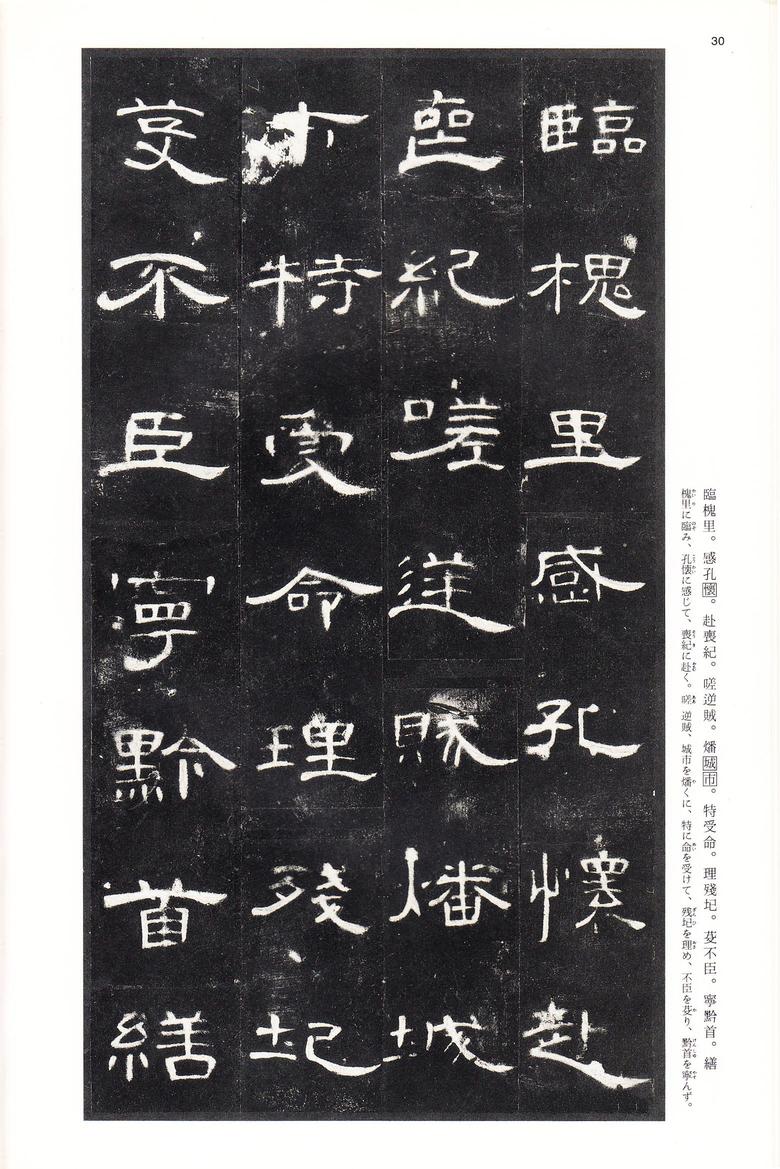 30
臨槐里感孔懷赴
喪紀嗟逆賊燔城
市特受命理殘圮
芟不臣寧黔首繕
臨槐里。感孔懷。赴喪紀。嗟逆賊。燔城市。特受命。理殘圮。芟不臣。寧黔首。繕
槐里に臨み、孔懐に感じて、喪紀に赴く。嗟逆賊、城市を燔くに、特に命を受けて、残圮を理め、不臣を芟り、黔首を寧んず。